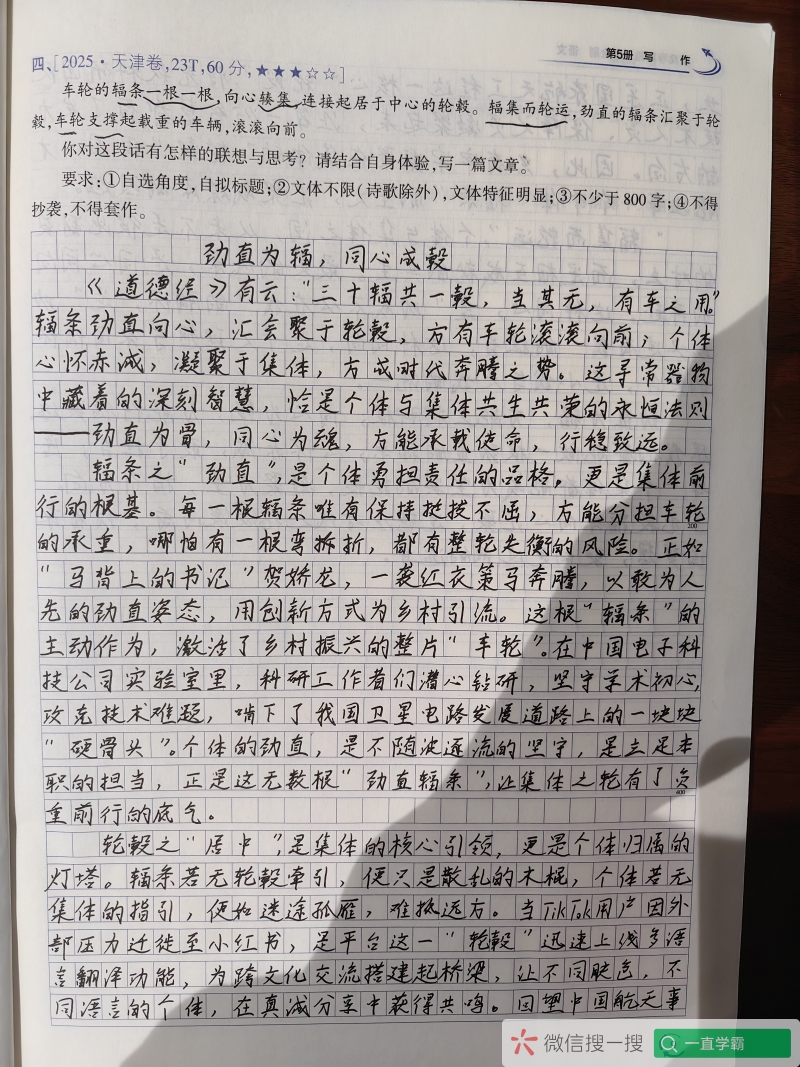 第5册 写 作
四、[2025·天津卷,23T,60分,★★★☆☆]
车轮的辐条一根一根,向心辏集,连接起居于中心的轮毂。辐集而轮运,劲直的辐条汇聚于轮
毂,车轮支撑起载重的车辆,滚滚向前。
你对这段话有怎样的联想与思考?请结合自身体验,写一篇文章。
要求:①自选角度,自拟标题;②文体不限(诗歌除外),文体特征明显;③不少于800字;④不得
抄袭,不得套作。
劲直为辐,同心成毂
《道德经》有云:“三十辐共一毂,当其无,有车之用。”
辐条劲直向心,汇会聚于轮毂,方有车轮滚滚向前;个体
心怀赤诚,凝聚于集体,方成时代奔腾之势。这寻常器物
中藏着的深刻智慧,恰是个体与集体共生共荣的永恒法则
——劲直为骨,同心为魂,方能承载使命,行稳致远。
辐条之“劲直”,是个体勇担责任的品格,更是集体前
行的根基。每一根辐条唯有保持挺拔不屈,方能分担车轮
200
的承重,哪怕有一根弯折折,都有整轮失衡的风险。正如
“马背上的书记”贺娇龙,一袭红衣策马奔腾,以敢为人
先的劲直姿态,用创新方式为乡村引流。这根“辐条”的
主动作为,激活了乡村振兴的整片“车轮”。在中国电子科
技公司实验室里,科研工作者们潜心钻研,坚守学术初心,
攻克技术难题,啃下了我国卫星电路发展道路上的一块块
“硬骨头”。个体的劲直,是不随波逐流的坚守,是立足本
职的担当,正是这无数根“劲直辐条”,让集体之轮有了负
400
重前行的底气。
轮毂之“居中”,是集体的核心引领,更是个体归属的
灯塔。辐条若无轮毂牵引,便只是散乱的木棍,个体若无
集体的指引,便如迷途孤雁,难抵远方。当TikTok用户因外
部压力迁徙至小红书,是平台这一“轮毂”迅速上线多语
言翻译功能,为跨文化交流搭建起桥梁,让不同肤色,不
同语言的个体,在真诚分享中获得共鸣。回望中国航天事
微信搜一搜
一直学霸